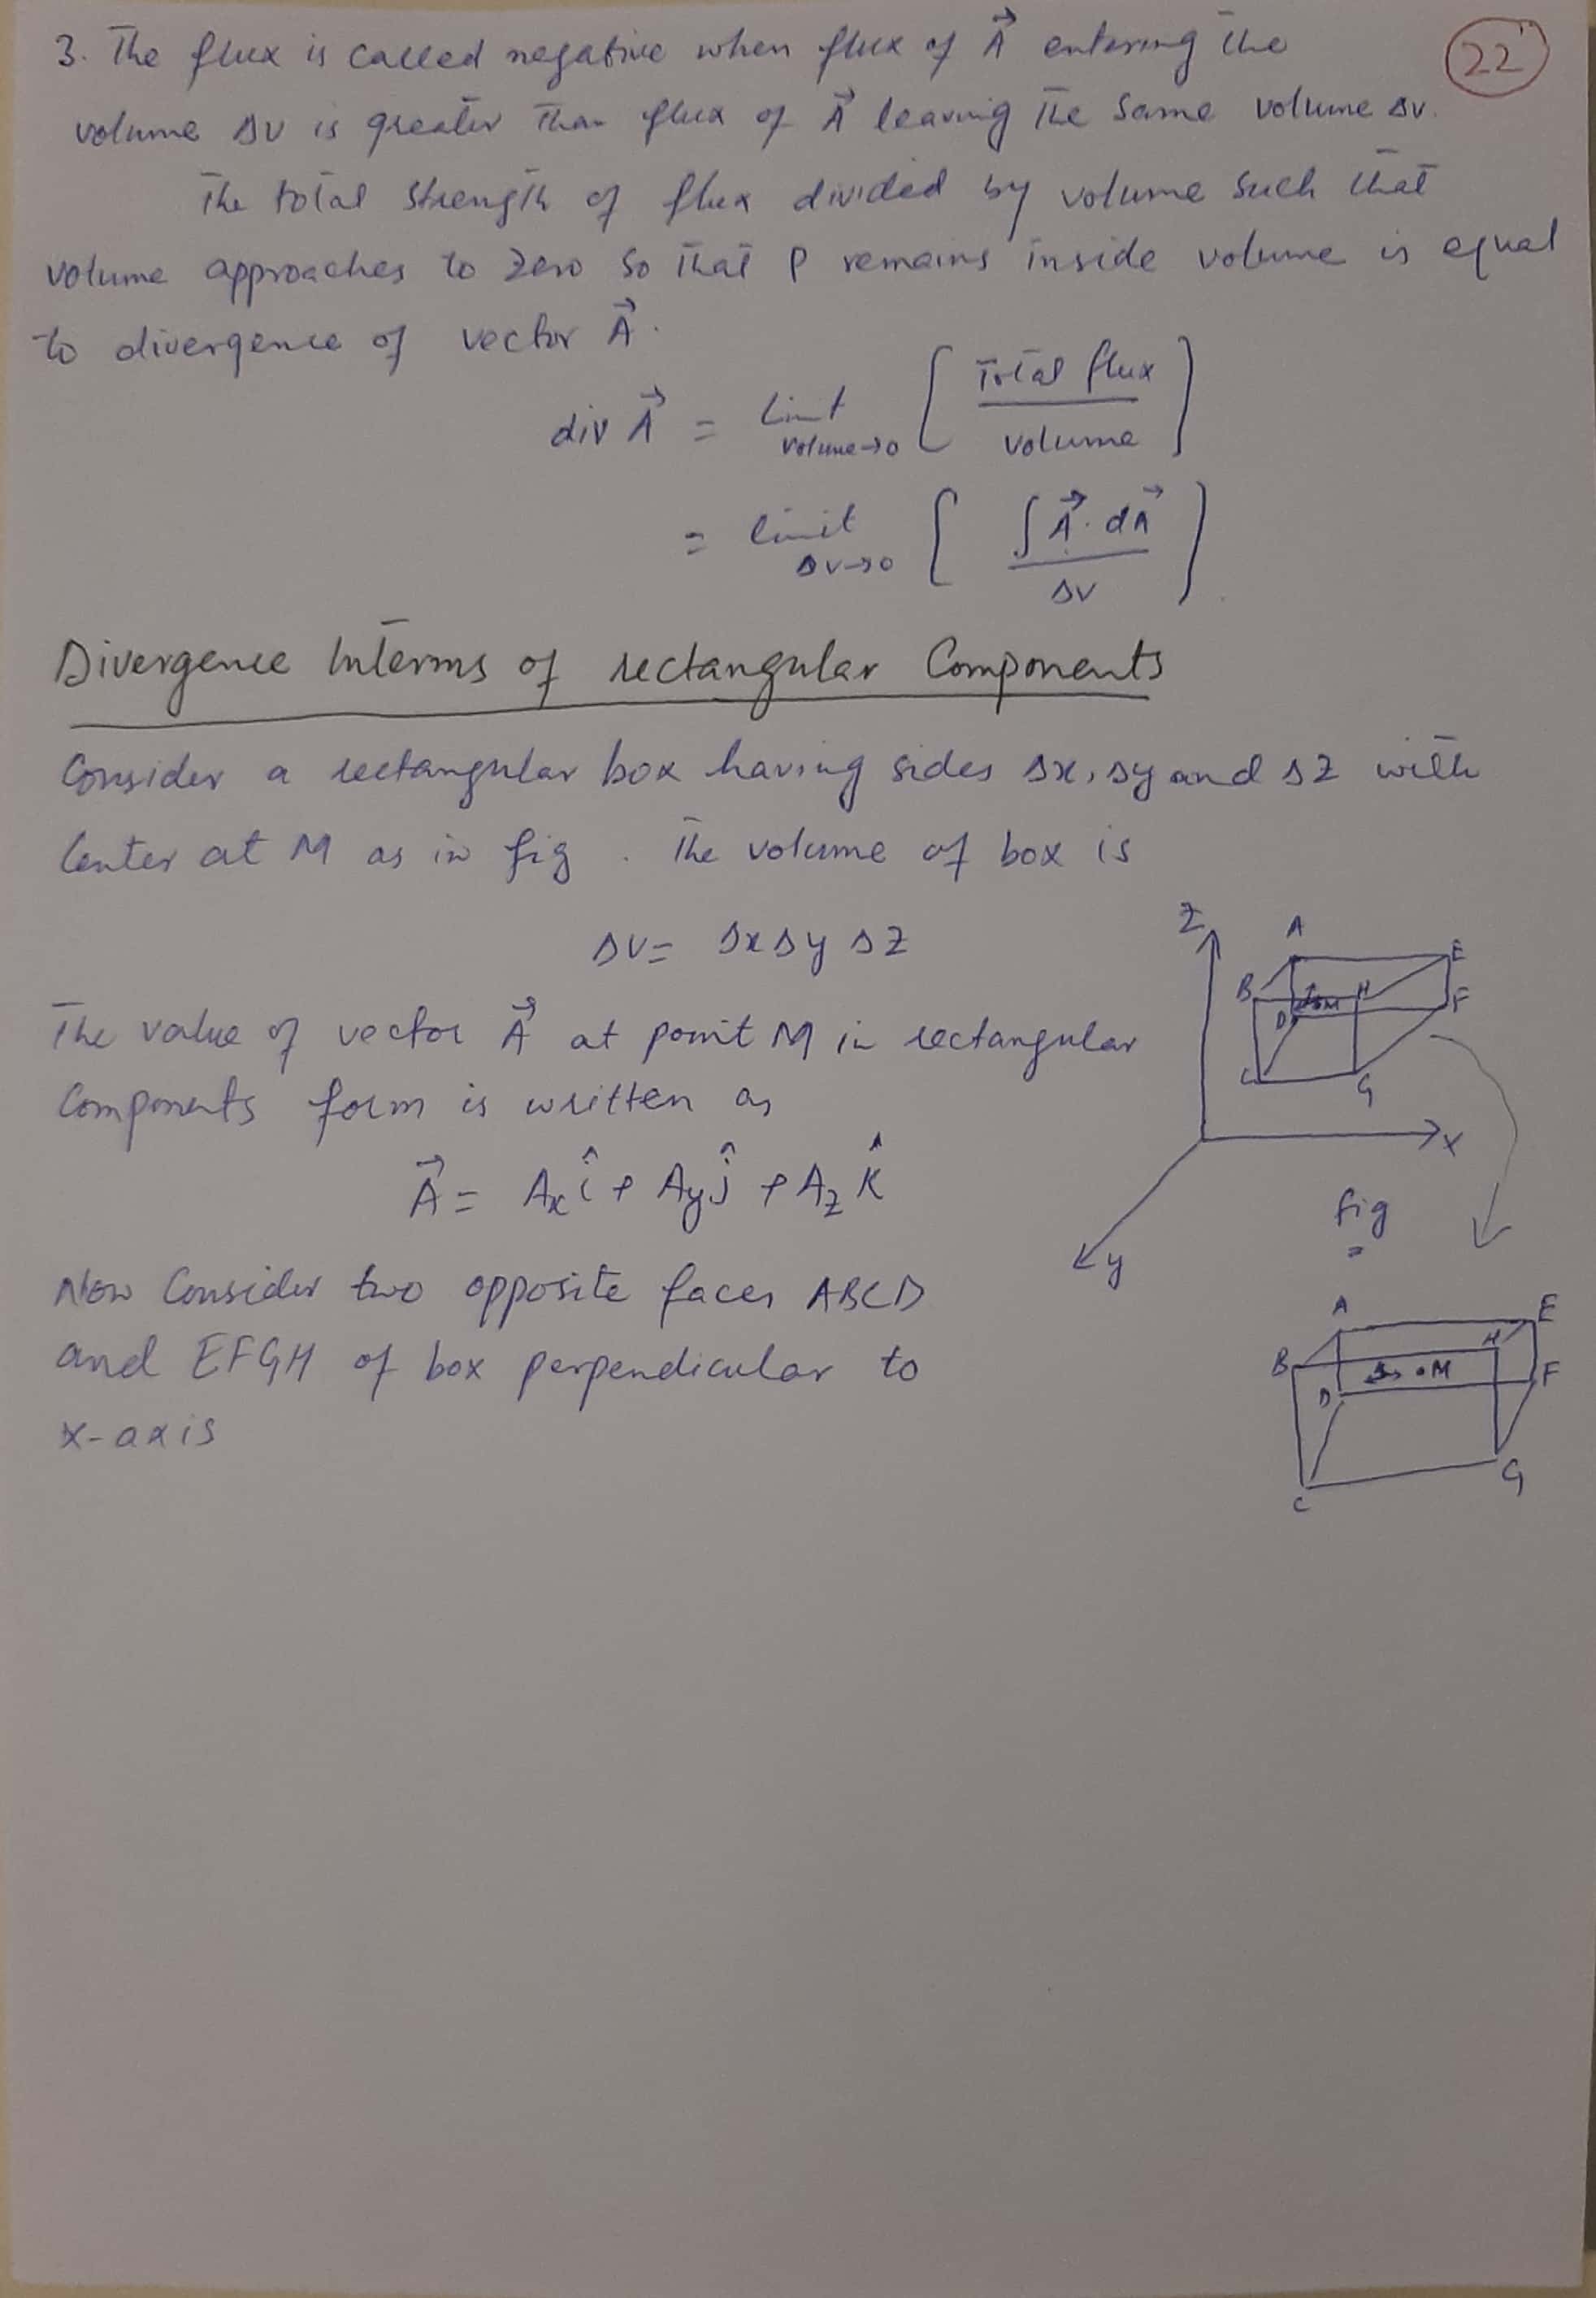 22
3. The flux is called negative when flux of A⃗ entering the
volume Δv is greater than flux of A⃗ leaving the same volume Δv.
The total strength of flux divided by volume such that
volume approaches to zero so that P remains inside volume is equal
to divergence of vector A⃗.
div A⃗ = Limit volume→0 [ Total flux / volume ]
= limit Δv→0 [ ∫ A⃗. dA⃗ / Δv ]
Divergence Interms of rectangular Components
Consider a rectangular box having sides Δx, Δy and Δz with
Center at M as in fig. The volume of box is
Δv = Δx Δy Δz
The value of vector A⃗ at point M in rectangular
Components form is written as
A⃗ = Ax î + Ay ĵ + Az k̂
Now Consider two opposite faces ABCD
and EFGH of box perpendicular to
x-axis
Z
A
E
B
H
M
F
D
C
G
x
y
fig
A
E
B
H
M
F
D
G
C